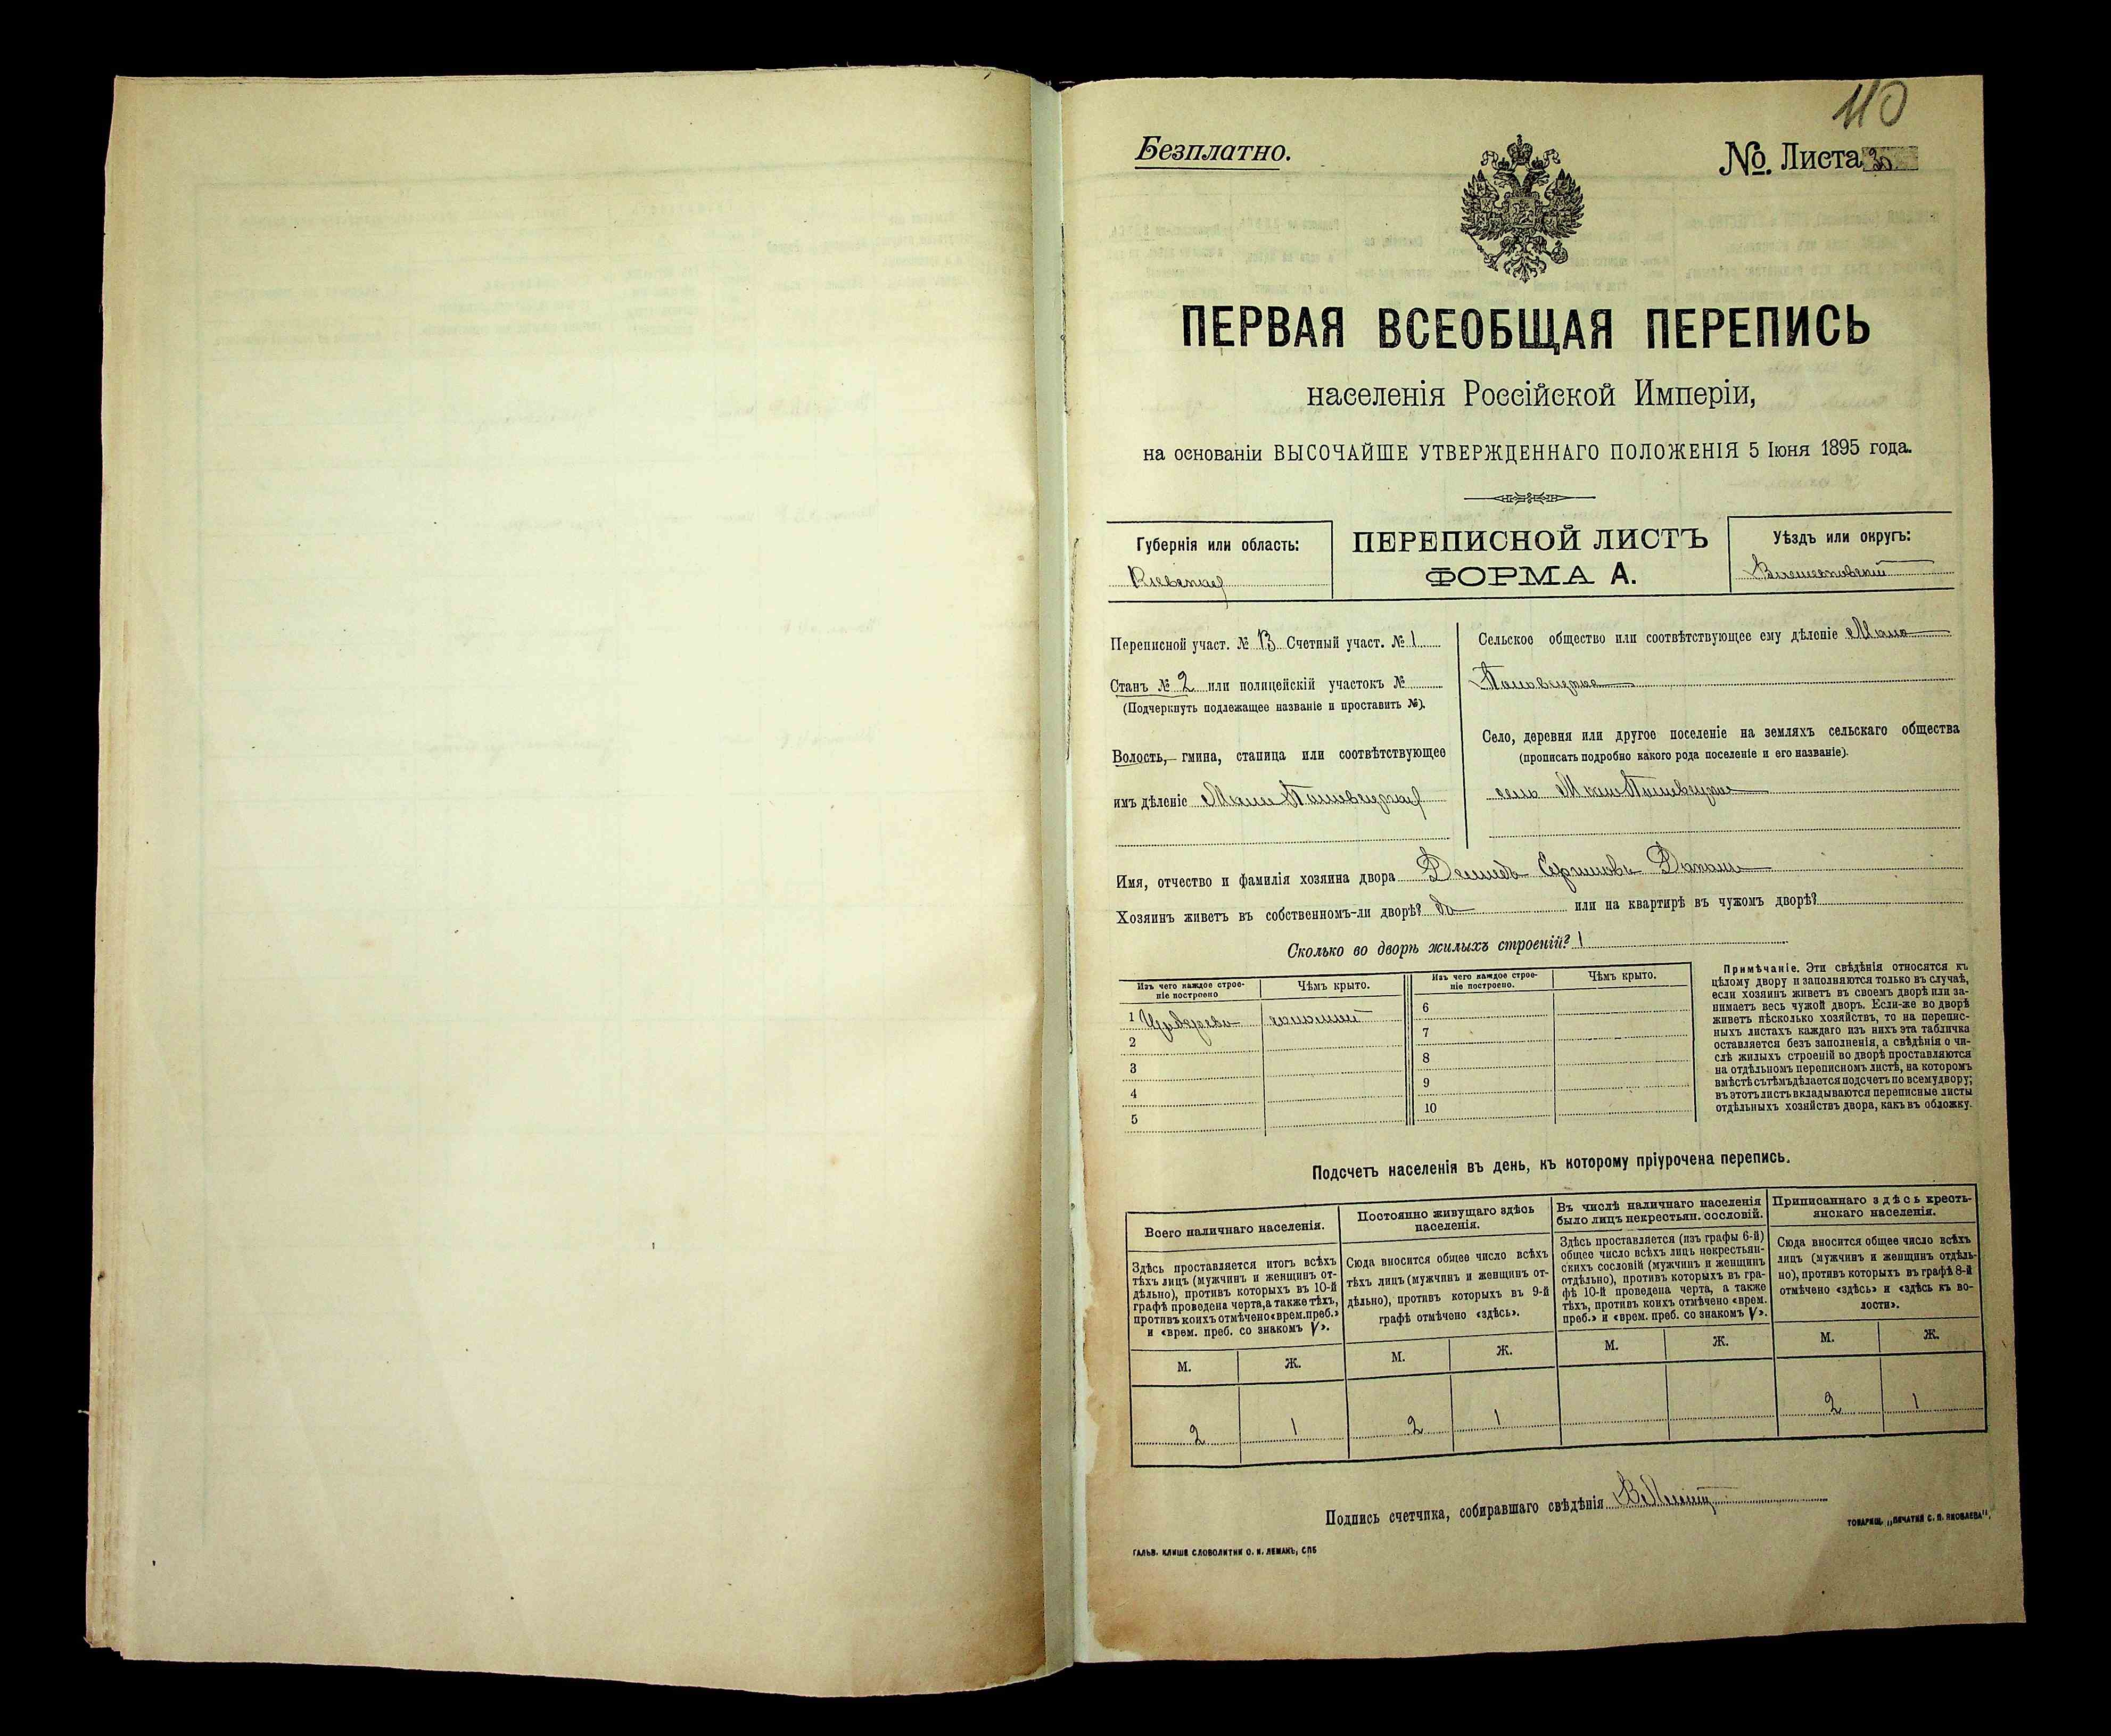 110
Безплатно.
№. Листа 30
ПЕРВАЯ ВСЕОБЩАЯ ПЕРЕПИСЬ
населенія Россійской Имперіи,
на основаніи ВЫСОЧАЙШЕ УТВЕРЖДЕННАГО ПОЛОЖЕНІЯ 5 Іюня 1895 года.
Губернія или область:
Кіевская
ПЕРЕПИСНОЙ ЛИСТЪ
ФОРМА А.
Уѣздъ или округъ:
Переписной участ. № 13 Счетный участ. № 1
Станъ № 2 или полицейскій участокъ №
(Подчеркнуть подлежащее названіе и проставить №).
Волость, гмина, станица или соотвѣтствующее
имъ дѣленіе
Сельское общество или соотвѣтствующее ему дѣленіе
Село, деревня или другое поселеніе на земляхъ сельскаго общества
(прописать подробно какого рода поселеніе и его названіе).
село
Имя, отчество и фамилія хозяина двора
Хозяинъ живетъ въ собственномъ-ли дворѣ? да или на квартирѣ въ чужомъ дворѣ?
Сколько во дворѣ жилыхъ строеній? 1
Изъ чего каждое строе-
ніе построено
Чѣмъ крыто.
1
2
3
4
5
Изъ чего каждое строе-
ніе построено.
Чѣмъ крыто.
6
7
8
9
10
Примѣчаніе. Эти свѣдѣнія относятся къ
цѣлому двору и заполняются только въ случаѣ,
если хозяинъ живетъ въ своемъ дворѣ или за-
нимаетъ весь чужой дворъ. Если-же во дворѣ
живетъ нѣсколько хозяйствъ, то на перепис-
ныхъ листахъ каждаго изъ нихъ эта табличка
оставляется безъ заполненія, а свѣдѣнія о чи-
слѣ жилыхъ строеній во дворѣ проставляются
на отдѣльномъ переписномъ листѣ, на которомъ
вмѣстѣ съ тѣмъ дѣлается подсчетъ по всему двору;
въ этотъ листъ вкладываются переписные листы
отдѣльныхъ хозяйствъ двора, какъ въ обложку.
Подсчетъ населенія въ день, къ которому пріурочена перепись.
Всего наличнаго населенія.
Здѣсь проставляется итогъ всѣхъ
тѣхъ лицъ (мужчинъ и женщинъ от-
дѣльно), противъ которыхъ въ 10-й
графѣ проведена черта, а также тѣхъ,
противъ коихъ отмѣчено «врем. преб.»
и «врем. преб. со знакомъ V».
М. Ж.
2 1
Постоянно живущаго здѣсь
населенія.
Сюда вносится общее число всѣхъ
тѣхъ лицъ (мужчинъ и женщинъ от-
дѣльно), противъ которыхъ въ 9-й
графѣ отмѣчено «здѣсь».
М. Ж.
2 1
Въ числѣ наличнаго населенія
было лицъ некрестьян. сословій.
Здѣсь проставляется (изъ графы 6-й)
общее число всѣхъ лицъ некрестьян-
скихъ сословій (мужчинъ и женщинъ
отдѣльно), противъ которыхъ въ гра-
фѣ 10-й проведена черта, а также
тѣхъ, противъ коихъ отмѣчено «врем.
преб.» и «врем. преб. со знакомъ V».
М. Ж.
Приписаннаго здѣсь кресть-
янскаго населенія.
Сюда вносится общее число всѣхъ
лицъ (мужчинъ и женщинъ отдѣль-
но), противъ которыхъ въ графѣ 8-й
отмѣчено «здѣсь» и «здѣсь къ во-
лости».
М. Ж.
2 1
Подпись счетчика, собиравшаго свѣдѣнія
ГАЛЬВ. КЛИШЕ СЛОВОЛИТНИ О. И. ЛЕМАНЪ, СПБ
ТОВАРИЩ. „ПЕЧАТНЯ С. П. ЯКОВЛЕВА".